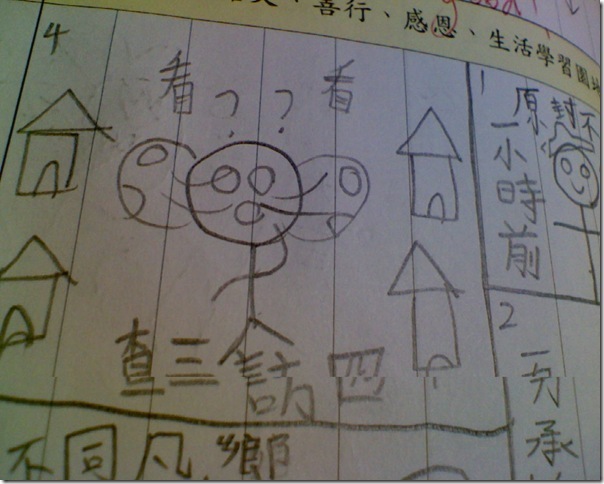 、善行、感恩、生活學習園
4
看？？看
查三訪四
1
原封不
一小時前
2
承
不同凡